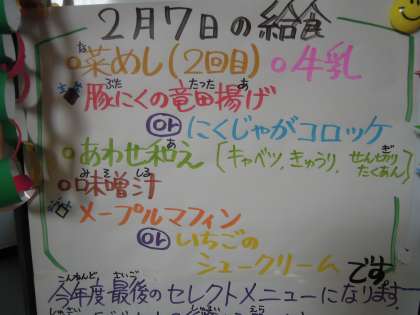 2月7日の給食
○菜めし(2回目) ○牛乳
豚にくの竜田揚げ
or にくじゃがコロッケ
○あわせ和え〔キャベツ、きゅうり、せん切りたくあん〕
○味噌汁
メープルマフィン
or いちごの
シュークリーム です
今年度最後のセレクトメニューになります。